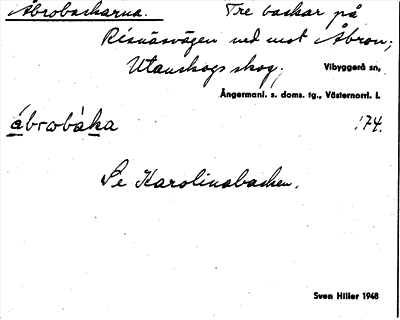 Åbrobackarna. Tre backar på
Resnäsvägen ned mot Åbron;
Utanskogs skog; Vibyggerå sn,
Ångermanl. s. doms. tg., Västernorrl. l.
åbrobàka 174.
Se Karolinabacken.
Sven Hiller 1948